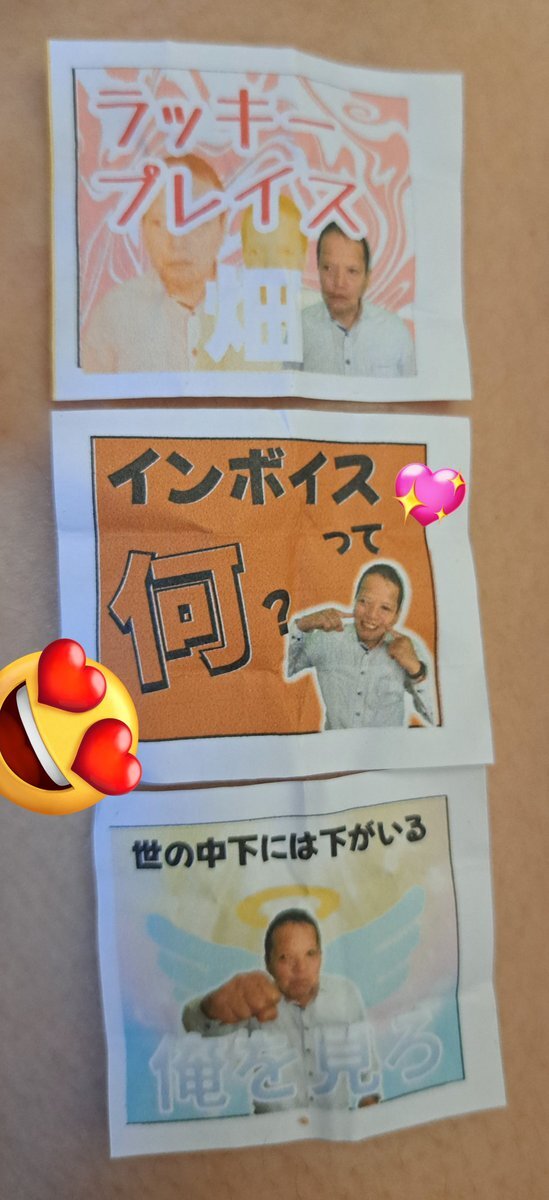 ラッキー
プレイス
畑
インボイス
って
何?
世の中下には下がいる
俺を見ろ